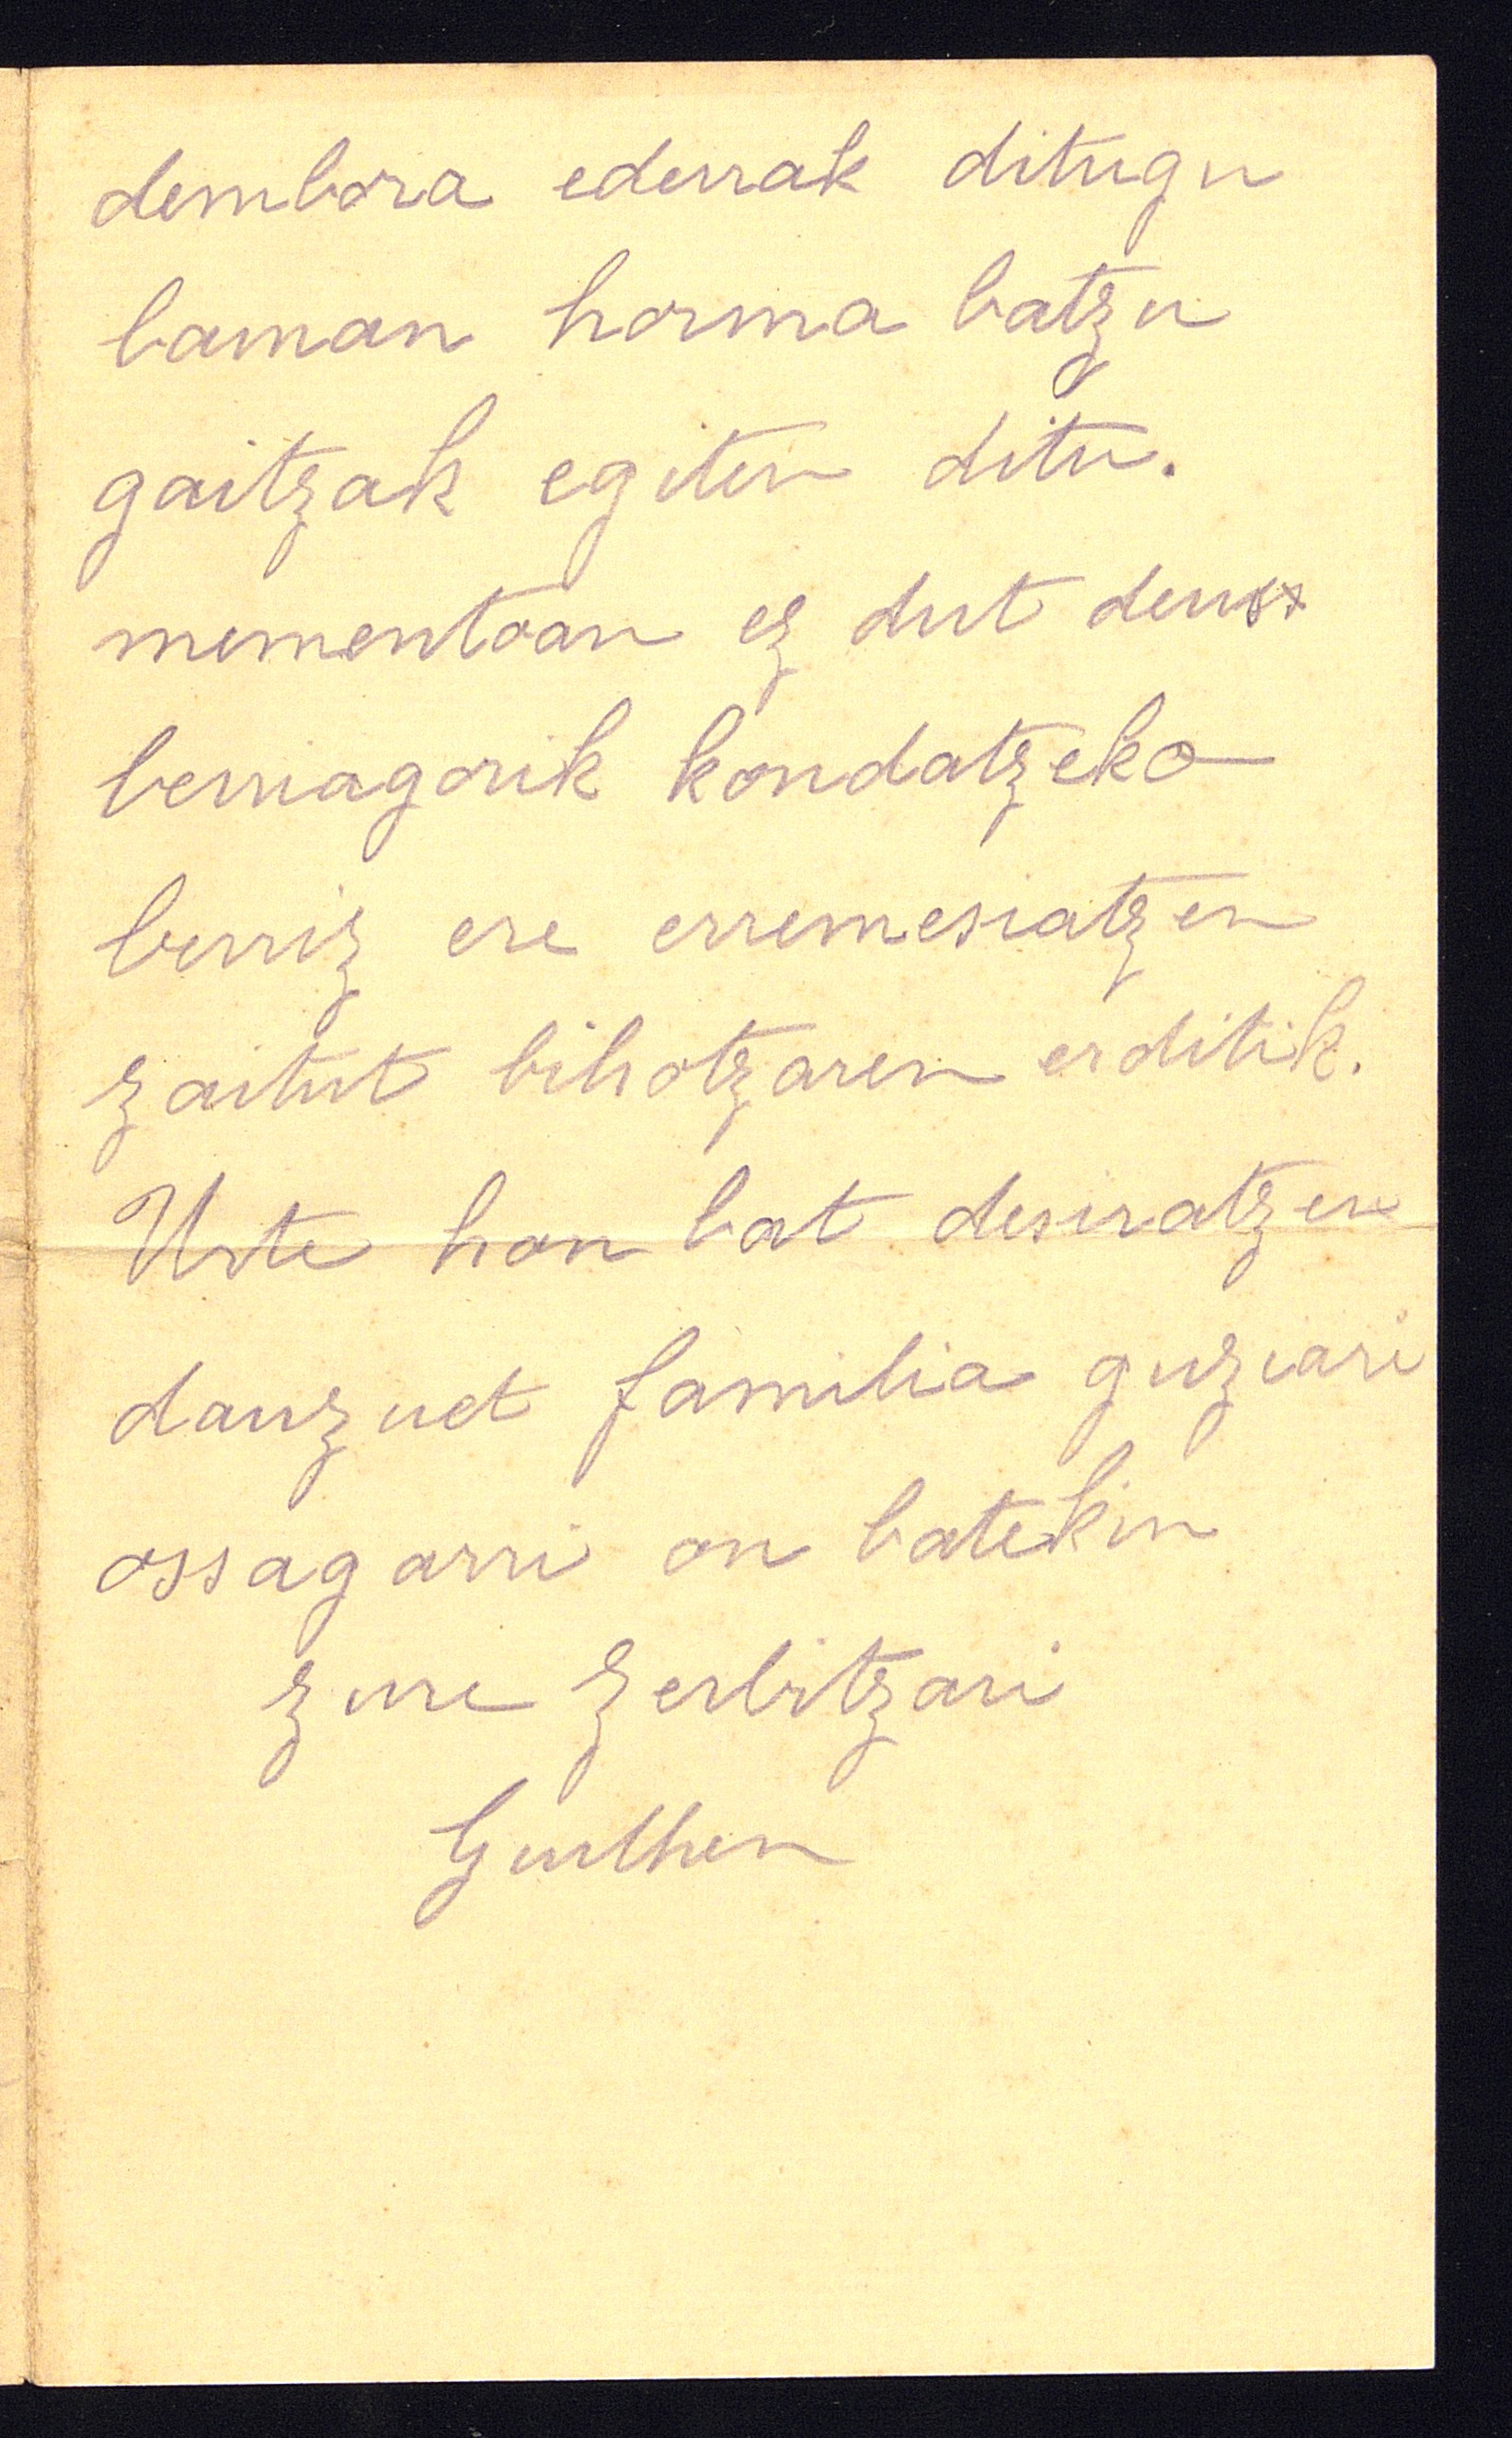 dembora ederrak ditugu
baman horma batzu
gaitzak egiten ditu.
mementoan ez dut deus
berriagorik kondatzeko
berriz ere erremesiatzen
zaitut bihotzaren erditik.
Urte hon bat desiratzen
dauzuet familia guziari
ossagarri on batekin
zure zerbitzari
Guilhen